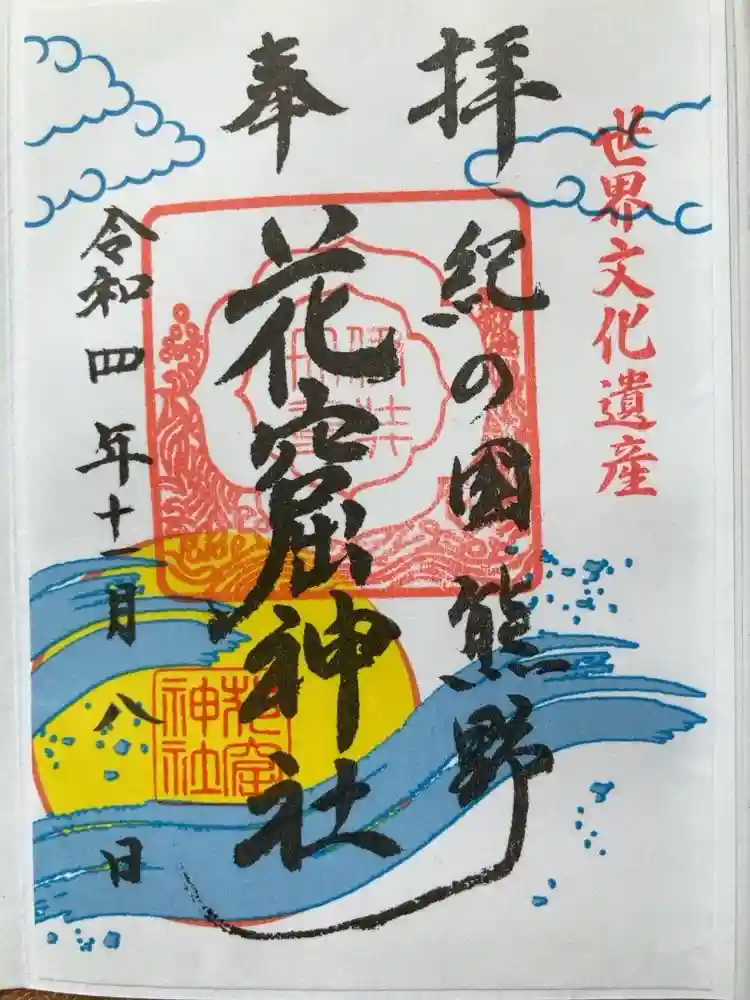 世界文化遺産
奉拝
紀の国 熊野
花窟神社
令和四年十一月八日
花窟
神社